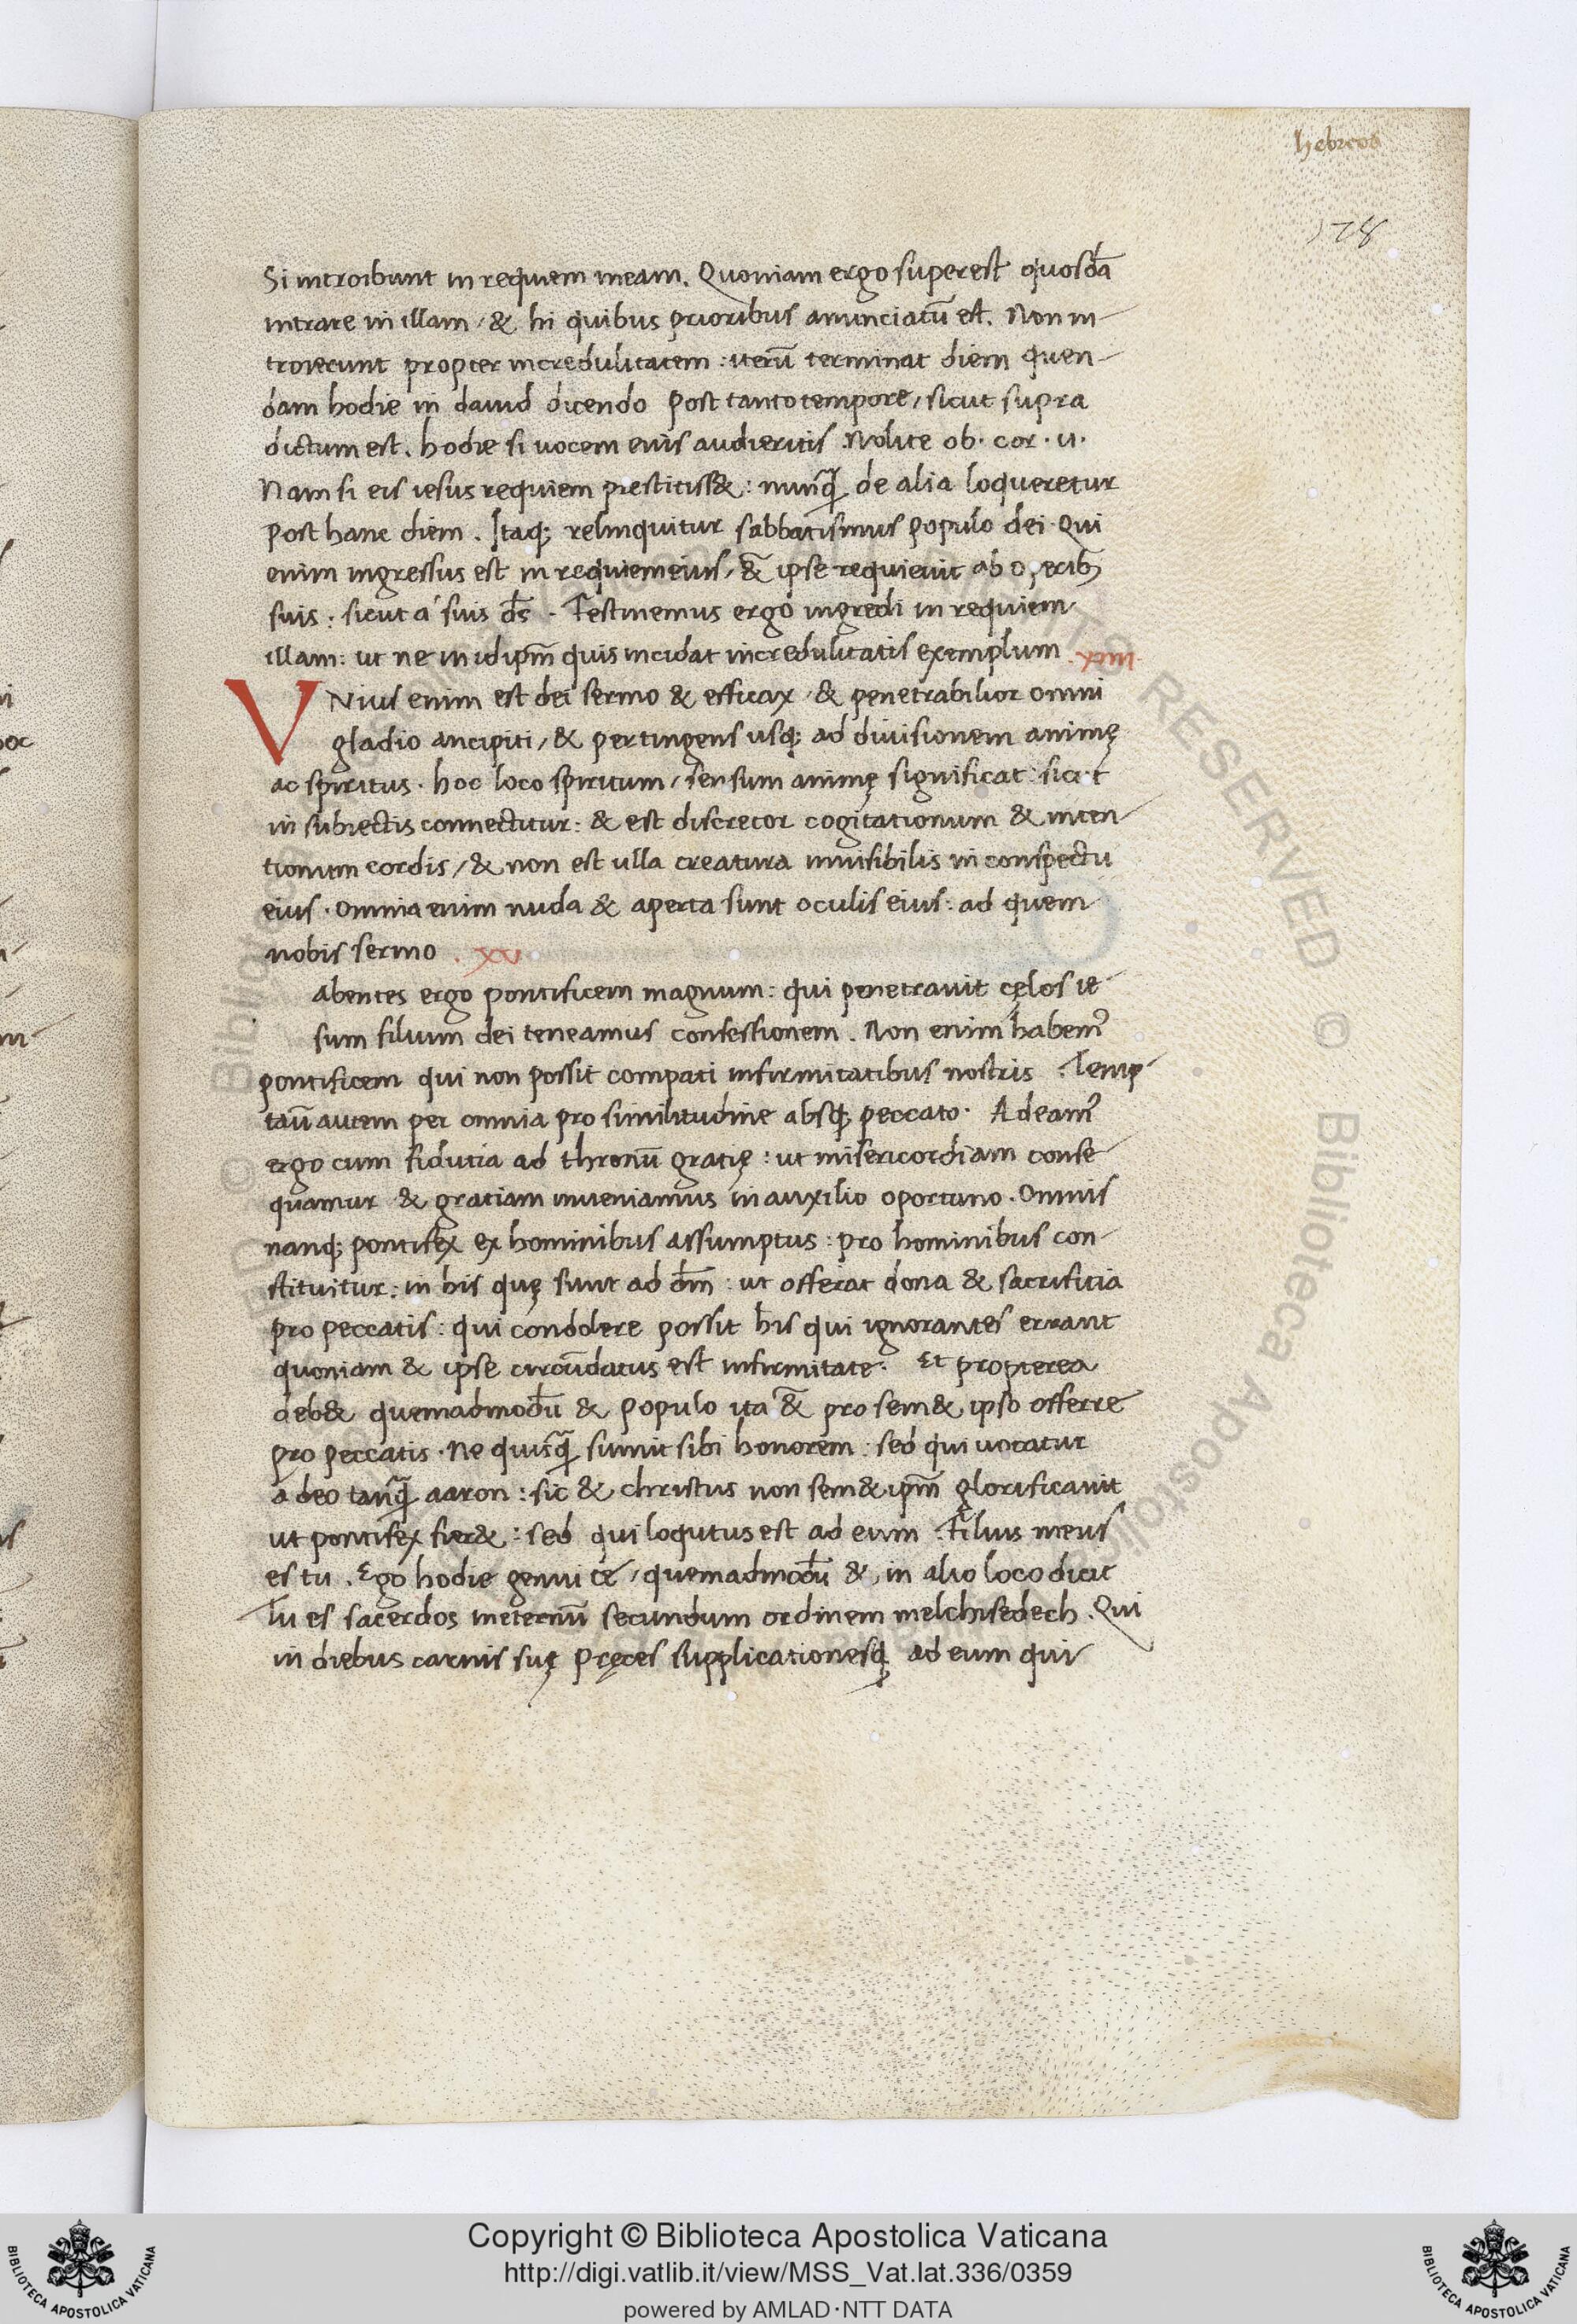 hebreos
178
Si introibunt in requiem meam. Quoniam ergo superest quosdā
intrare in illam / & hi quibus prioribus anunciatū est. Non in-
troierunt propter incredulitatem : iterū terminat diem quen-
dam hodie in david dicendo Post tanto tempore, sicut supra
dictum est. hodie si vocem eius audieritis Nolite ob. cor. u.
Nam si eis iesus requiem prestitiss& : nunq̄ de alia loqueretur
Post hanc diem. Itaq; relinquitur sabbatismus populo dei. Qui
enim ingressus est in requiem eius, &̄ ipse requievit ab operib;
suis : sicut a suis dēs. Festinemus ergo ingredi in requiem
illam : ut ne in idipm̄ quis incidat incredulitatis exemplum .xiiii.
VNius enim est dei sermo & efficax / & penetrabilior omni
gladio ancipiti / & pertingens usq; ad divisionem animę
ac spiritus. hoc loco spiritum / sensum animę significat : sicut
in subiectis connectitur : & est discretor cogitationum & inten-
tionum cordis / & non est ulla creatura invisibilis in conspectu
eius. Omnia enim nuda & aperta sunt oculis eius : ad quem
nobis sermo . xv
abentes ergo pontificem magnum : qui penetravit cęlos ie-
sum filium dei teneamus confessionem. Non enim habem⁹
pontificem qui non possit compati infirmitatibus nostris. Temp-
tatū autem per omnia pro similitudine absq; peccato. Adeam⁹
ergo cum fiducia ad thronū gratię : ut misericordiam conse-
quamur & gratiam inveniamus in auxilio oportuno. Omnis
nanq; pontifex ex hominibus assumptus : pro hominibus con-
stituitur : in his quę sunt ad dm̄ : ut offerat dona & sacrificia
pro peccatis : qui condodere possit his qui ignorantes errant
quoniam & ipse circūdatus est infirmitate. Et propterea
deb& quemadmodū & populo ita &̄ pro sem& ipso offerre
pro peccatis. Ne quisq̄ sumit sibi honorem : sed qui vocatur
a deo tanq̄ aaron : sic & christus non sem& ipm̄ glorificavit
ut pontifex fier& : sed qui loqutus est ad eum. Filius meus
es tu. Ego hodie genui te / quemadmodū & in alio loco dicit
Tu es sacerdos ineternū secundum ordinem melchisedech. Qui
in diebus carnis suę pręces supplicationesq; ad eum qui
Copyright © Biblioteca Apostolica Vaticana
http://digi.vatlib.it/view/MSS_Vat.lat.336/0359
powered by AMLAD·NTT DATA